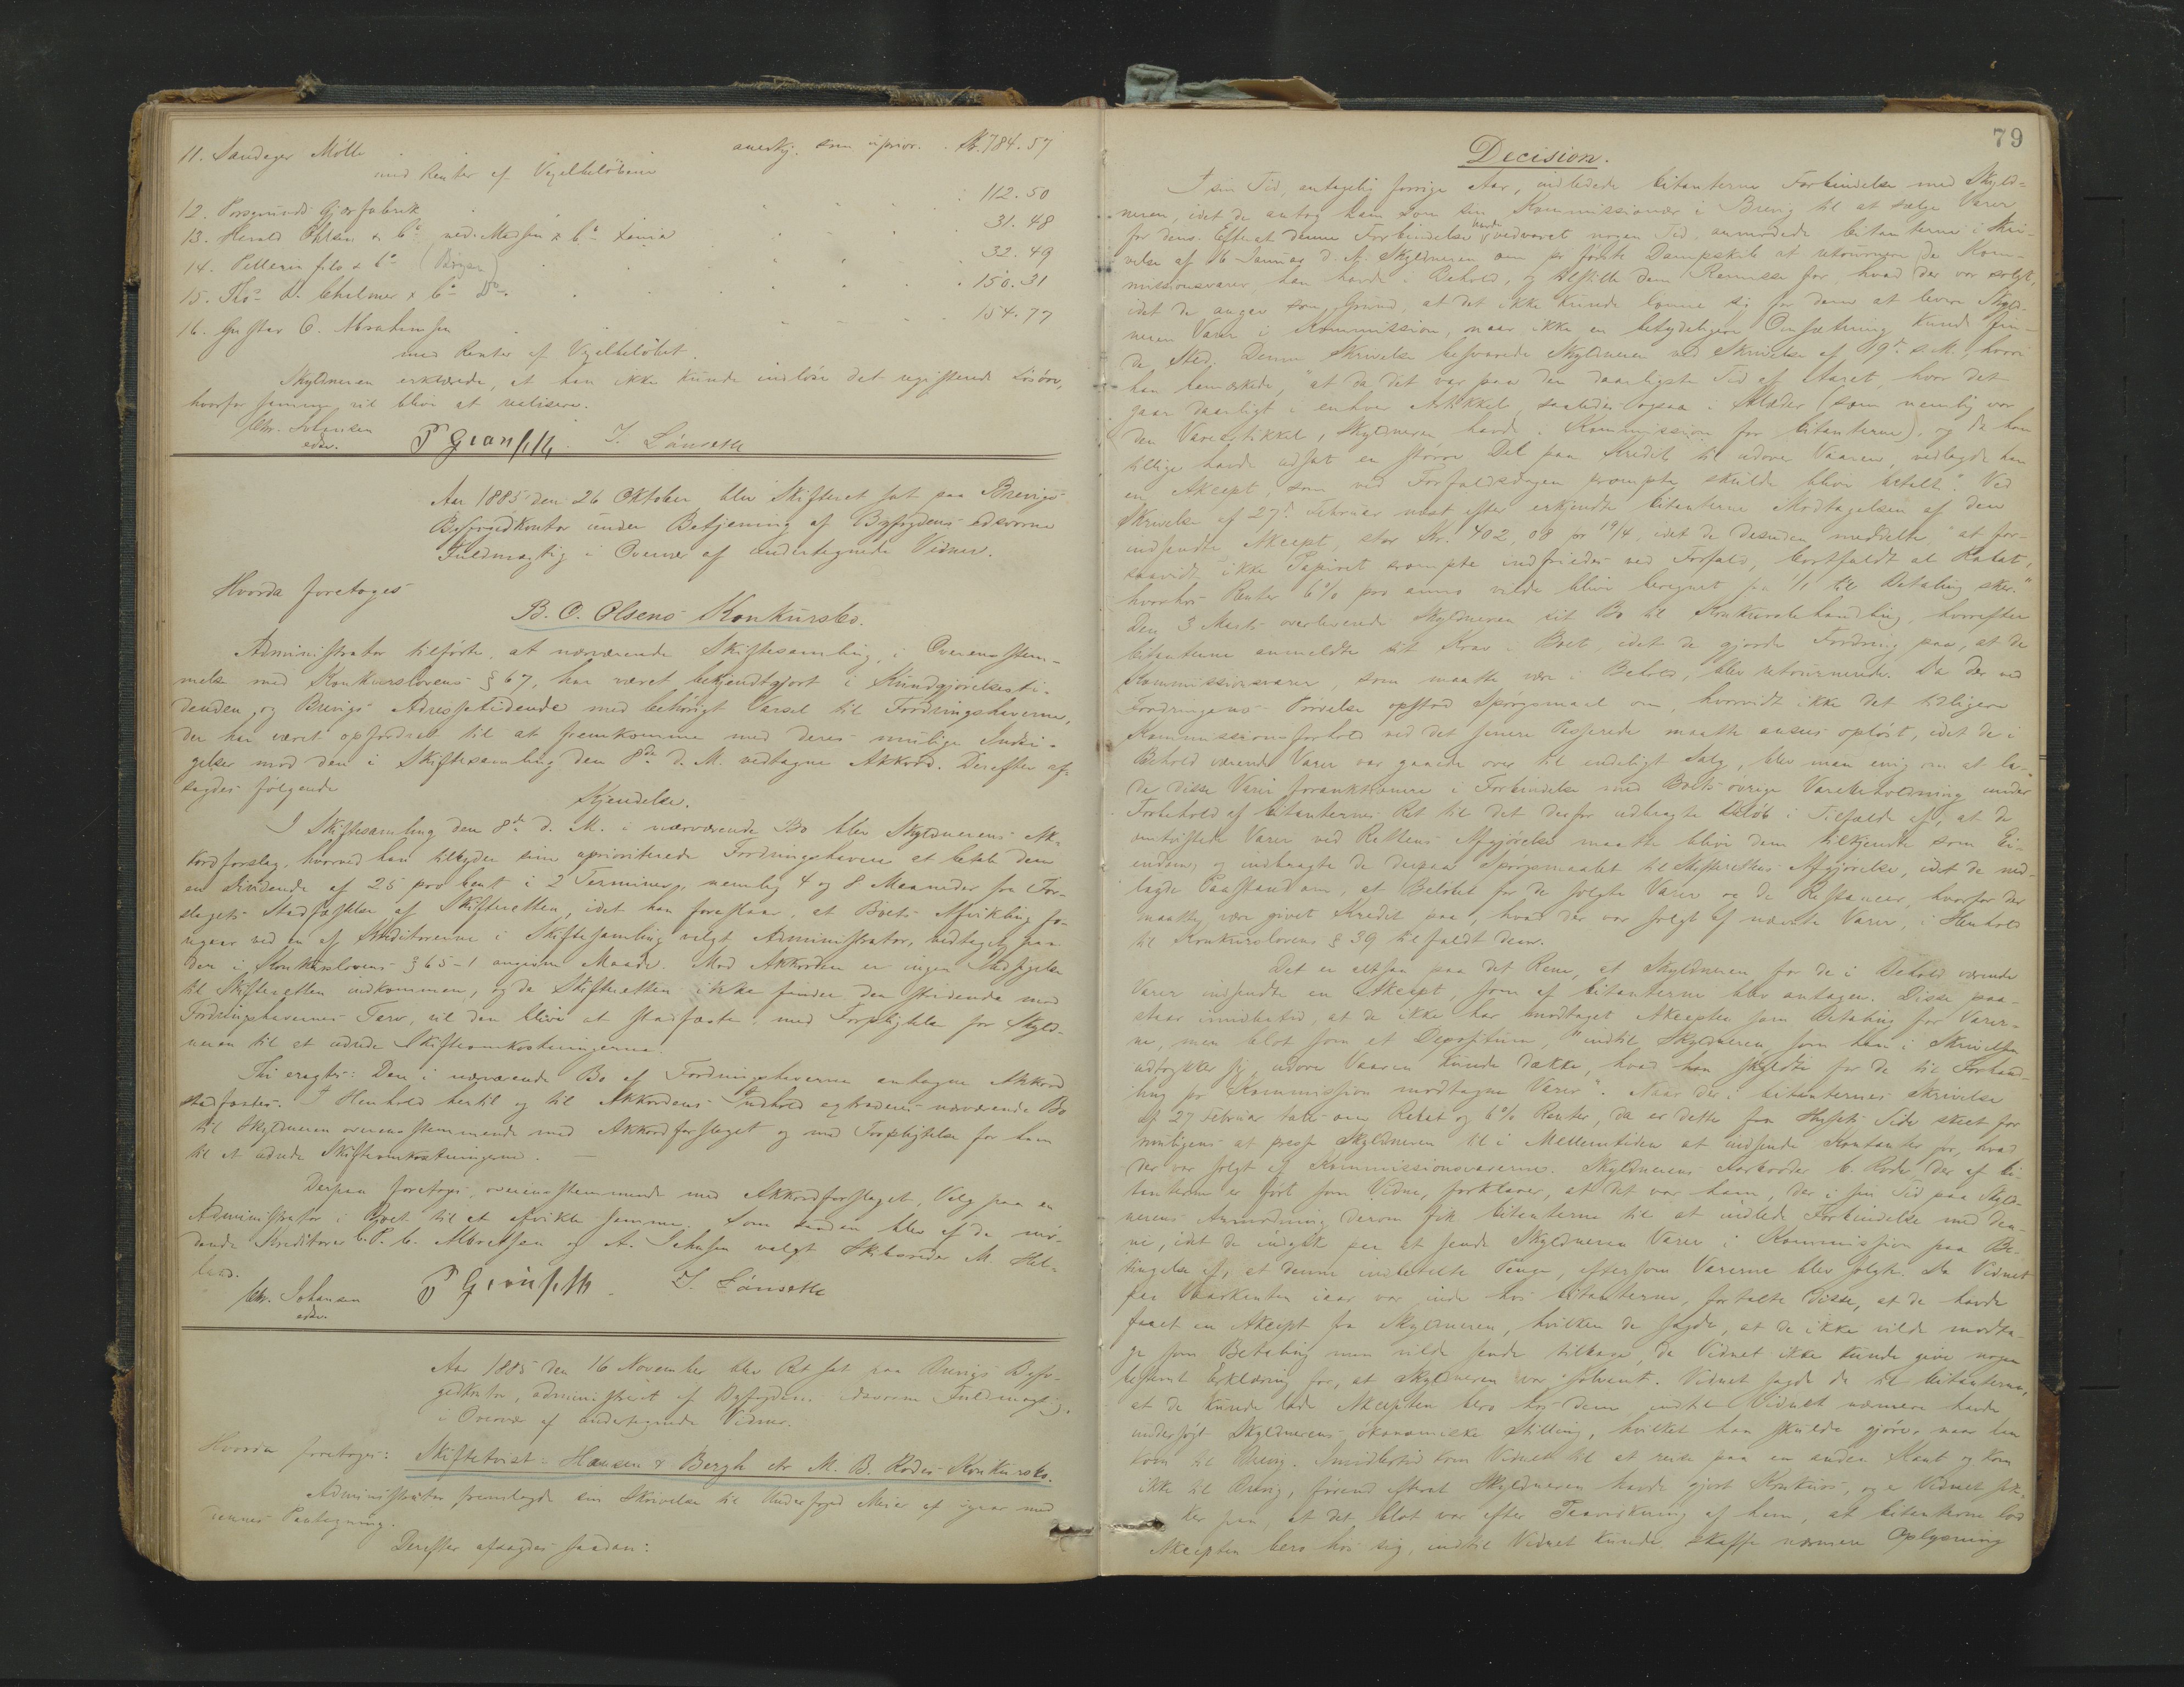 11. Sandager Mølle . . . anerkj. som uprior. . Kr. 784.57
med Renter af Vexelbeløbene
12. Porsgrunds Gjærfabrik . . . 112.50
13. Herald Ohlsen & Co ved Madsen & Co . . . 31.48
14. Pellerin fils & Co (Bergen) . . . 32.49
15. Tho. D. Chalmer & Co Do. . . . 150.31
16. Gustav C. Abrahamsen . . . 154.77
med Renter af Vexelbeløbet.
Skyldneren erklærede, at han ikke kunde indløse det registrerede Løsøre,
hvorfor samme vil blive at realisere.
Chr. Johansen
edsv.
Aar 1885 den 26 Oktober blev Skifteret sat paa Brevigs
Byfogedkontor under Betjening af Byfogdens edsvorne
Fuldmægtig i Overvær af undertegnede Vidner.
Hvorda foretoges
B. O. Olsens Konkursbo.
Administrator tilførte, at nærværende Skiftesamling, i Overensstem-
melse med Konkurslovens § 67, har været bekjendtgjort i Kundgjørelsesti-
denden og Brevigs Adressetidende med behørigt Varsel til Fordringshaverne,
der har været opfordret til at fremkomme med deres mulige Indsi-
gelser mod den i Skiftesamling den 8de d. M. vedtagne Akkord. Derefter af-
sagdes følgende
Kjendelse.
I Skiftesamling den 8de d. M. i nærværende Bo blev Skyldnerens Ak-
kordforslag, hvorved han tilbyder sine uprioriterede Fordringshavere at betale dem
en Dividende af 25 pro Cent i 2 Terminer, nemlig 4 og 8 Maaneder fra For-
slagets Stadfæstelse af Skifteretten, idet han foreslaar, at Boets Afvikling fo-
regaar ved en af Kreditorerne i Skiftesamling valgt Administrator, vedtaget paa
den i Konkurslovens § 65-1 angivne Maade. Mod Akkorden er ingen Indsigelse
til Skifteretten indkommen, og da Skifteretten ikke finder den stridende mod
Fordringshavernes Tarv, vil den blive at stadfæste, med Forpligtelse for Skyld-
neren til at udrede Skifteomkostningerne.
Thi eragtes: Den i nærværende Bo af Fordringshaverne antagne Akkord
stadfæstes. I Henhold hertil og til Akkordens Indhold extraderes nærværende Bo
til Skyldneren overensstemmende med Akkordforslaget og med Forpligtelse for ham
til at udrede Skifteomkostningerne. —
Derpaa foretoges, overensstemmende med Akkordforslaget, Valg paa en
Administrator i Boet til at afvikle samme. Som saadan blev af de mø-
dende Kreditorer C. P. C. Albretsen og A. Johnsen valgt Skibsreder M. Hel-
land.
Chr. Johansen
edsv.
Aar 1885 den 16 November blev Ret sat paa Brevigs Byfo-
gedkontor, administreret af Byfogdens edsvorne Fuldmægtig,
i Overvær af undertegnede Vidner.
Hvorda foretoges: Skiftetvist: Hansen & Bergh ctr M. B. Rødes Konkursbo.
Administrator fremlagde sin Skrivelse til Underfoged Meier af igaar med
dennes Paategning.
Derefter afsagdes saadan:
79
Decision.
I sin Tid, antagelig forrige Aar, indledede Citanterne Forbindelse med Skyld-
neren, idet de antog ham som sin Kommissionær i Brevig til at sælge Varer
for dem. Efterat denne Forbindelse havde vedvaret nogen Tid, anmodede Citanterne i Skri-
velse af 16 Januar d. A. Skyldneren om pr første Dampskib at retournere de Kom-
missionsvarer, han havde i Behold, og tilstille dem Remisse for hvad der var solgt,
idet de angav som Grund, at det ikke kunde lønne sig for dem at levere Skyld-
neren Varer i Kommission, naar ikke en betydeligere Omsætning kunde fin-
de Sted. Denne Skrivelse besvarede Skyldneren ved Skrivelse af 19de s. M., hvori
han bemærkede, "at da det var paa den daarligste Tid af Aaret, hvor det
gaar daarligt i enhver Artikkel, saaledes ogsaa i Klæder (som nemlig var
den Vareartikkel, Skyldneren havde i Kommission for Citanterne), og da han
tillige havde udsat en større Del paa Kredit til udover Vaaren, vedlagde han
en Akcept, som ved Forfaldsdagen prompte skulde blive betalt." Ved
Skrivelse af 27de Februar næst efter erkjendte Citanterne Modtagelsen af den
indsendte Akcept, stor Kr. 402,08 pr 19/4, idet de desuden meddelte, "at for-
saavidt ikke Papiret prompte indfriedes ved Forfald, bortfaldt al Rabat,
hvorhos Renter 6% pro anno vilde blive beregnet fra 1/1 til Betaling sker."
Den 3 Marts overleverede Skyldneren sit Bo til Konkursbehandling, hvorefter
Citanterne anmeldte sit Krav i Boet, idet de gjorde Fordring paa, at de
Kommissionsvarer, som maatte være i Behold, blev retournerede. Da der ved
Fordringens Prøvelse opstod Spørgsmaal om, hvorvidt ikke det tidligere
Kommissionsforhold ved det senere Passerede maatte ansees opløst, idet de i
Behold værende Varer var gaaede over til endeligt Salg, blev man enig om at la-
de disse Varer forauktionere i Forbindelse med Boets øvrige Varebeholdning under
Forbehold af Citanternes Ret til det derfor udbragte Beløb i Tilfælde af, at de
omtvistede Varer ved Rettens Afgjørelse maatte blive dem tilkjendte som Ei-
endom, og indbragte de derpaa Spørgsmaalet til Skifterettens Afgjørelse, idet de ned-
lagde Paastand om, at Beløbet for de solgte Varer og de Restancer, hvorfor der
maatte være givet Kredit paa, hvad der var solgt af nævnte Varer, i Henhold
til Konkurslovens § 39 tilfaldt dem.
Det er altsaa paa det Rene, at Skyldneren for de i Behold værende
Varer indsendte en Akcept, som af Citanterne blev antagen. Disse paa-
staar imidlertid, at de ikke har modtaget Akcepten som Betaling for Varer-
ne, men blot som et Depositum, "indtil Skyldneren, som han i Skrivelsen
udtrykker sig, udover Vaaren kunde dække, hvad han skyldte for de til Forhand-
ling pr Kommission modtagne Varer". Naar der i Citanternes Skrivelse
af 27 Februar tales om Rabat og 6% Renter, da er dette fra Husets Side skeet for
muligens at presse Skyldneren til i Mellemtiden at indsende Kontanter for, hvad
der var solgt af Kommissionsvarerne. Skyldnerens Svoger C. Røde, der af Ci-
tanterne er ført som Vidne, forklarer, at det var ham, der i sin Tid paa Skyld-
nerens Anmodning derom fik Citanterne til at indlede Forbindelse med den-
ne, idet de indgik paa at sende Skyldneren Varer i Kommission paa Be-
tingelse af, at denne indbetalte Penge, eftersom Varerne blev solgte. Da Vidnet
paa Vaarkanten iaar var inde hos Citanterne, fortalte disse, at de havde
faaet en Akcept fra Skyldneren, hvilken de sagde, at de ikke vilde modta-
ge som Betaling men vilde sende tilbage, da Vidnet ikke kunde give nogen
bestemt Erklæring for, at Skyldneren var solvent. Vidnet sagde da til Citanterne,
at de kunde lade Akcepten bero hos dem indtil Vidnet nærmere havde
undersøgt Skyldnerens økonomiske Stilling, hvilket han skulde gjøre, naar han
kom til Brevig. Imidlertid kom Vidnet til at reise paa en anden Kant og kom
ikke til Brevig, førend efterat Skyldneren havde gjort Konkurs, og er Vidnet sik-
ker paa, at det blot var efter Paavirkning af ham, at Citanterne lod
Akcepten bero hos sig, indtil Vidnet kunde skaffe nærmere Oplysning